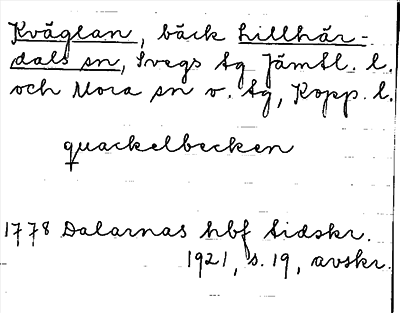 Kväglan, bäck Lillhär-
dals sn, Svegs tg Jämtl. l.
och Mora sn o. tg, Kopp. l.
quackelbecken
1778 Dalarnas hbf tidskr.
1921, s. 19, avskr.